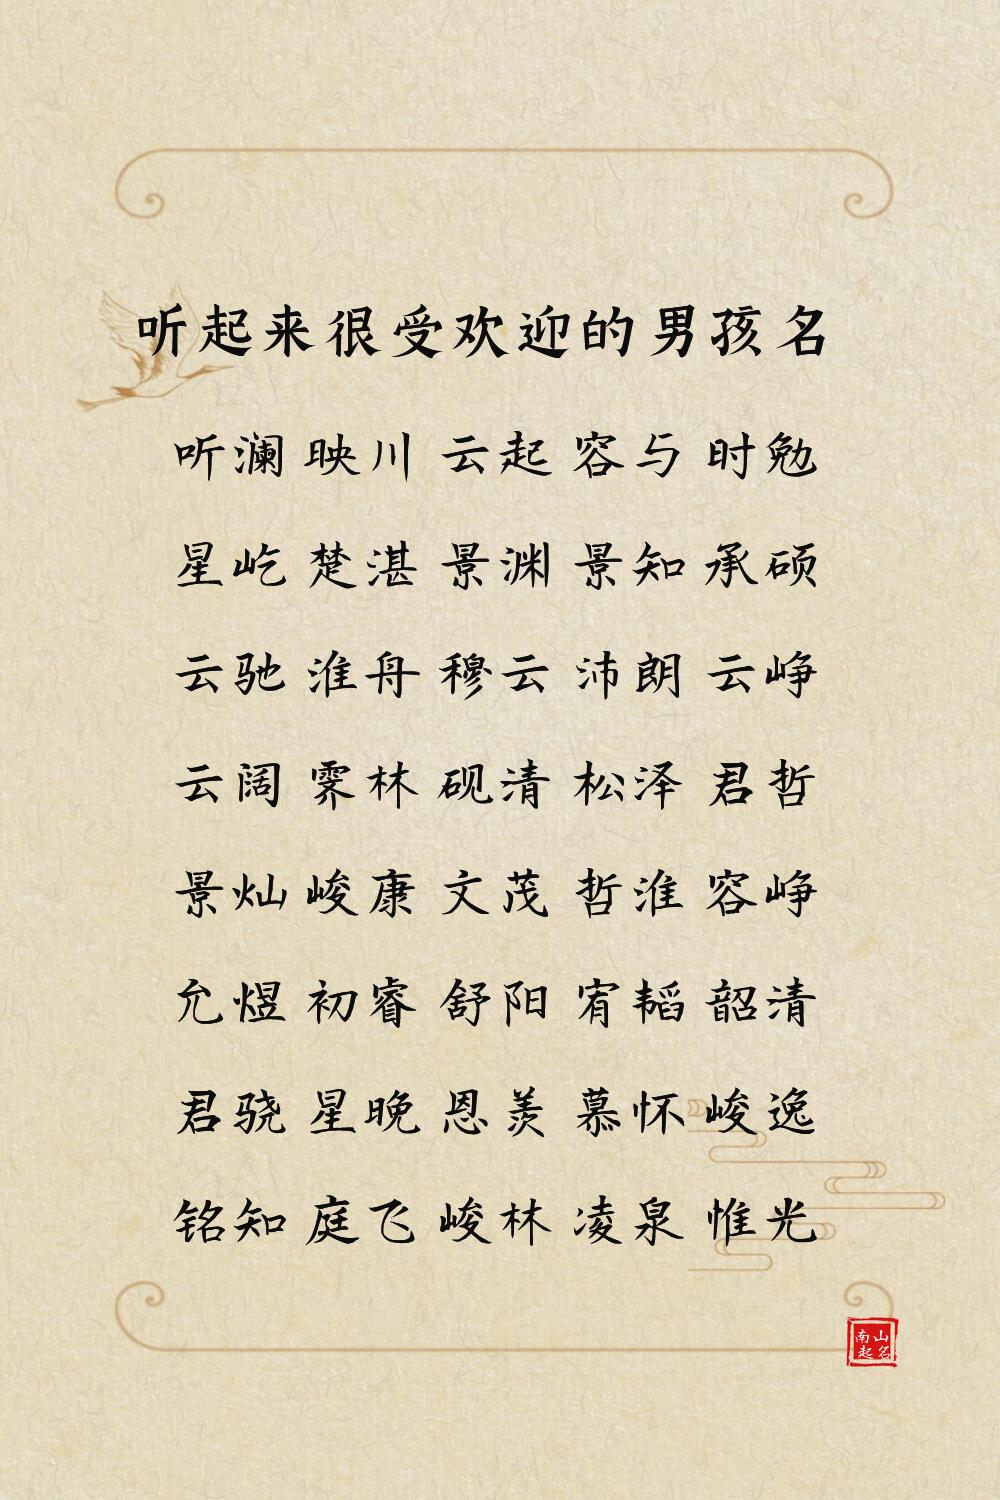 听起来很受欢迎的男孩名
听澜 映川 云起 容与 时勉
星屹 楚湛 景渊 景知 承硕
云驰 淮舟 穆云 沛朗 云峥
云阔 霁林 砚清 松泽 君哲
景灿 峻康 文茂 哲淮 容峥
允煜 初睿 舒阳 宥韬 韶清
君骁 星晚 恩羡 慕怀 峻逸
铭知 庭飞 峻林 凌泉 惟光
南山
起名